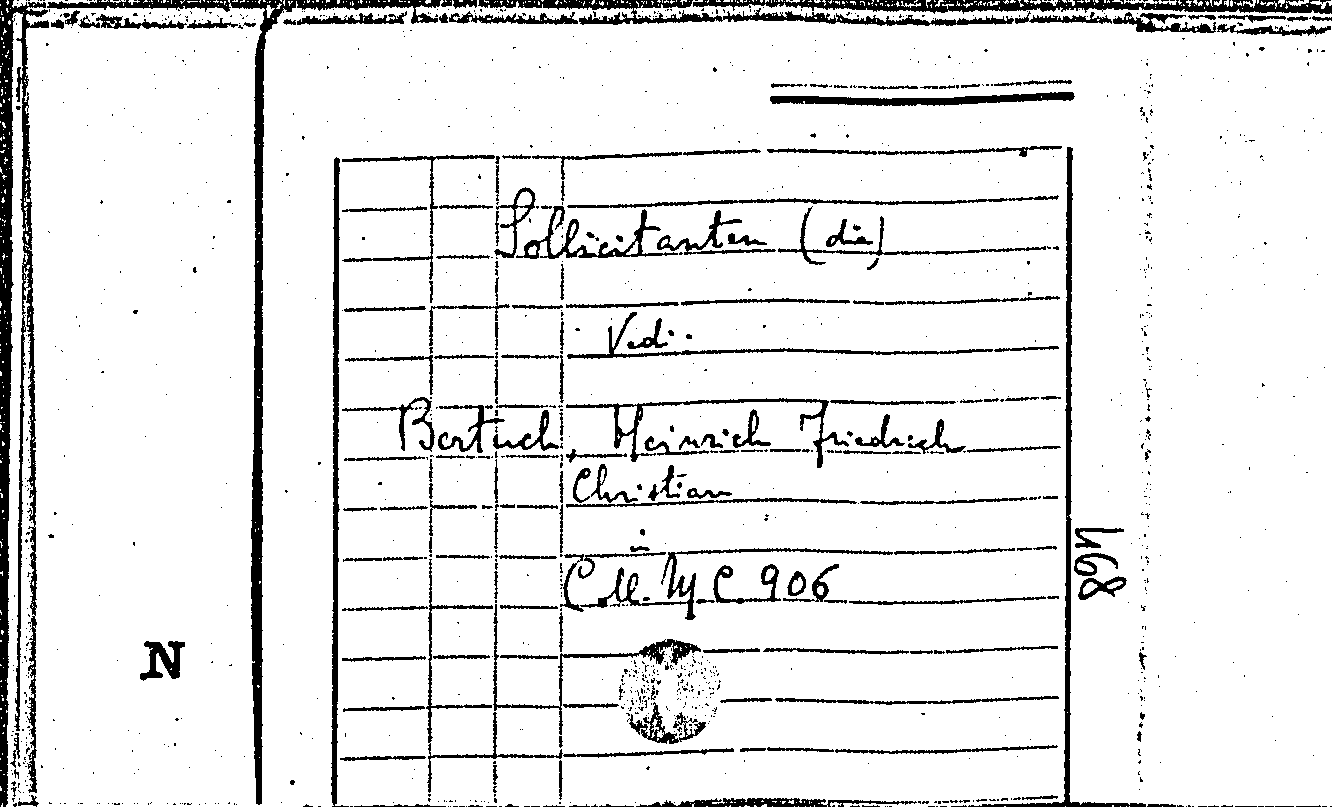 Sollicitanten (die)
Vedi.
Bertuch, Heinrich Friedrich
Christian
in
Coll. M. C. 906
468
N